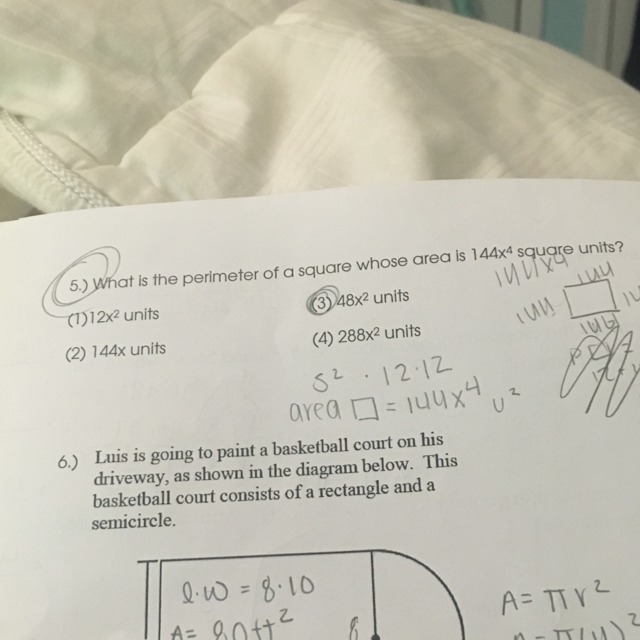 5.) What is the perimeter of a square whose area is 144x⁴ square units?
(1) 12x² units
(3) 48x² units
(2) 144x units
(4) 288x² units
144x⁴
144
144
144
S² · 12·12
area □ = 144x⁴ u²
6.) Luis is going to paint a basketball court on his
driveway, as shown in the diagram below. This
basketball court consists of a rectangle and a
semicircle.
l·w = 8·10
A= 80ft²
8
A= πr²